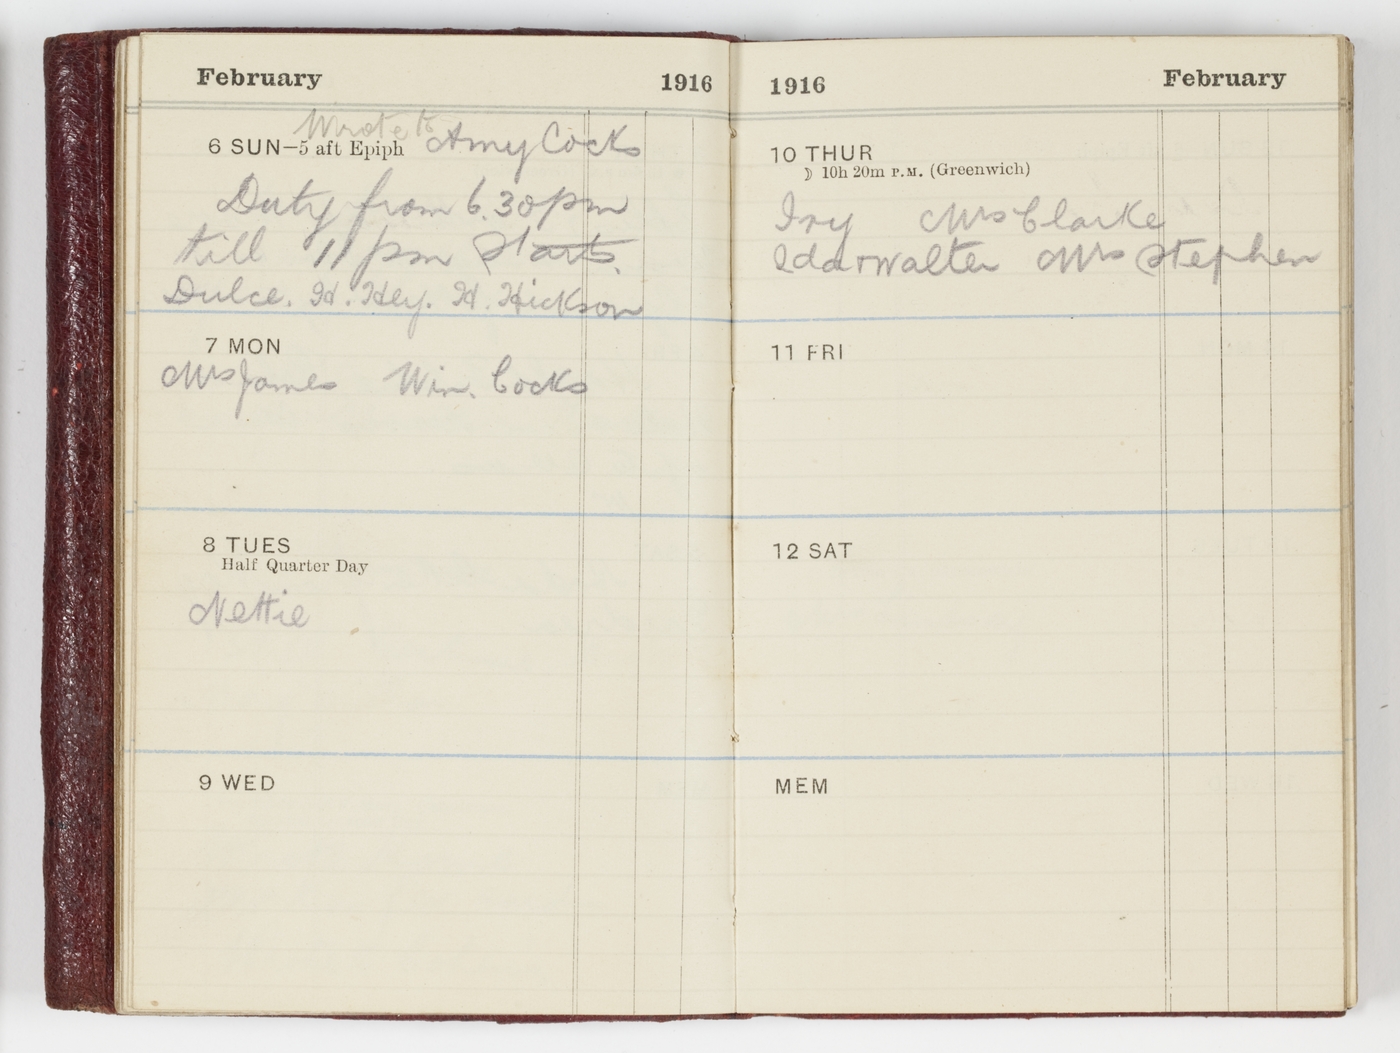 February 1916
Wrote to
6 SUN—5 aft Epiph Amy Cocks
Duty from 6.30 pm
till 11 pm Starts.
Dulce. H. Hey. H. Hickson
7 MON
Mrs James Win. Cocks
8 TUES
Half Quarter Day
Nettie
9 WED
1916 February
10 THUR
☽ 10h 20m P.M. (Greenwich)
Ivy Mrs Clarke
Ida + Walter Mrs Stephen
11 FRI
12 SAT
MEM